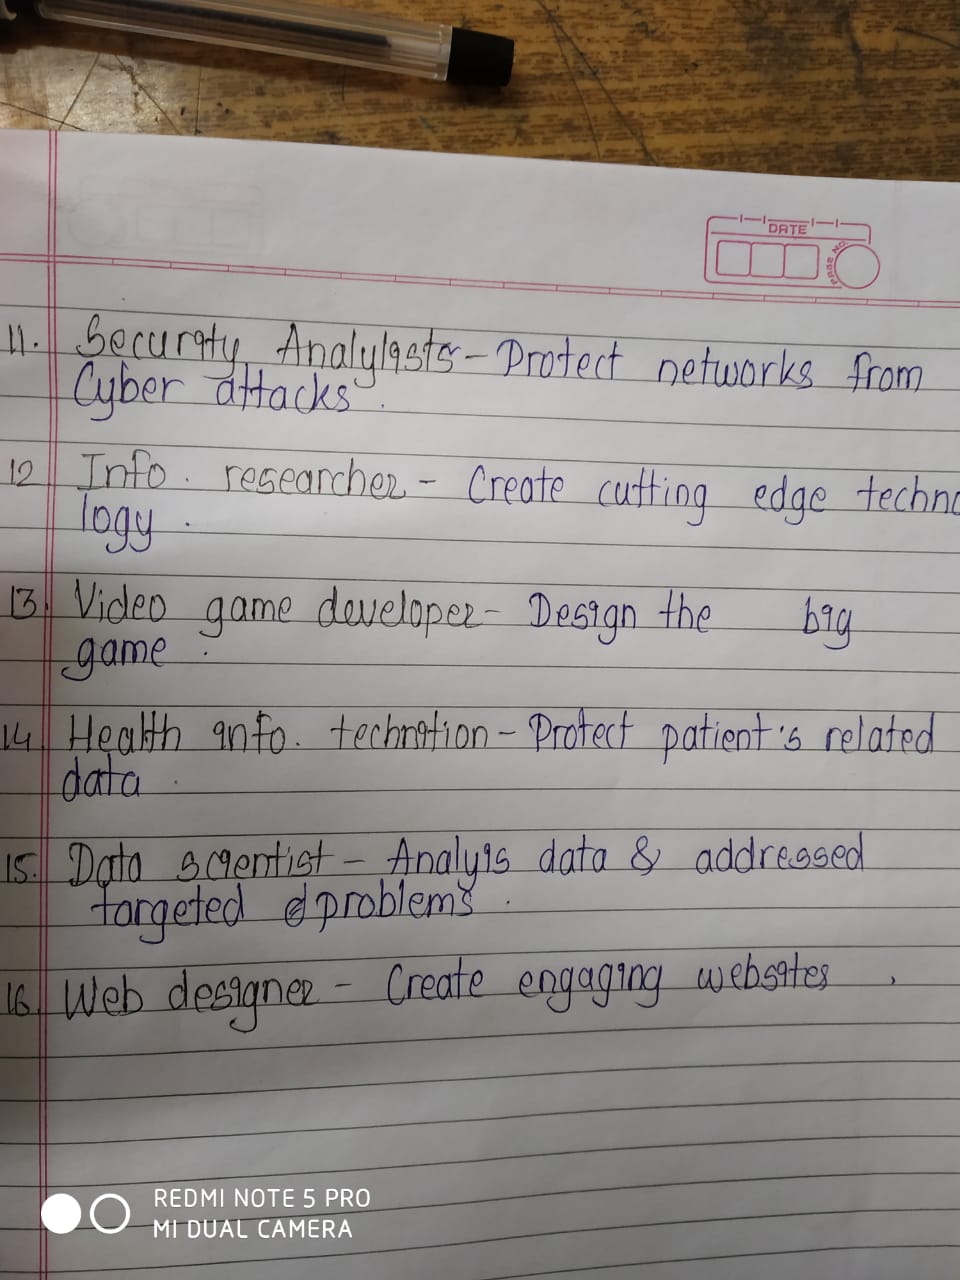 DATE
PAGE NO.
11. Security Analylists - Protect networks from
Cyber attacks.
12 Info. researcher - Create cutting edge techno
logy.
13. Video game developer - Design the big
game.
14. Health info. technition - Protect patient's related
data.
15. Data scientist - Analyis data & addressed
targeted problems.
16. Web designer - Create engaging websites.
REDMI NOTE 5 PRO
MI DUAL CAMERA